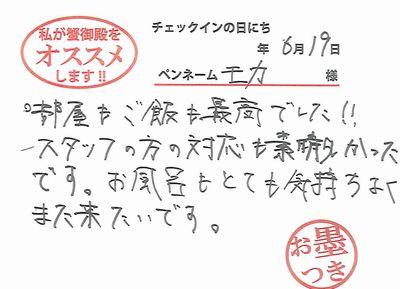 私が蟹御殿を
オススメ
します!!
チェックインの日にち
年 6月19日
ペンネーム モカ 様
お部屋もご飯も最高でした!!
スタッフの方の対応も素晴らしかった
です。お風呂もとても気持ちよく
また来たいです。
お墨
つき